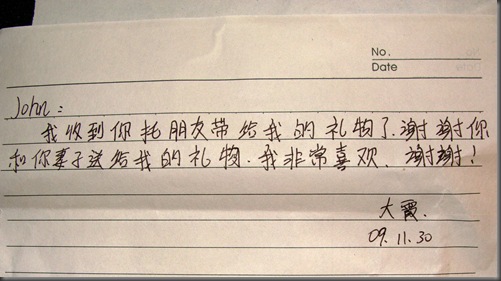 No.
Date
John:
我收到你托朋友带给我的礼物了.谢谢你
和你妻子送给我的礼物.我非常喜欢、谢谢!
大爱.
09.11.30